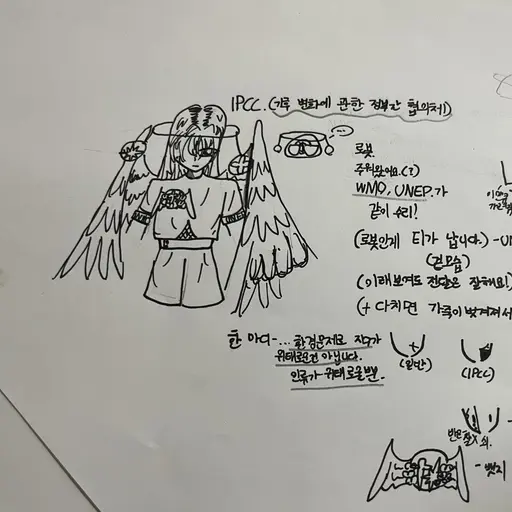 IPCC. (기후 변화에 관한 정부간 협의체)
로봇
주워왔어요.(?)
WMO, UNEP.가
같이 수리!
(로봇인게 티가 납니다.) -UN
(겉모습)
(이래보여도 전달은 잘해요!)
(+ 다치면 가죽이 벗겨져서
한 마디-... 환경문제로 지구가
위태로운건 아닙니다.
인류가 위태로울뿐.
(일반)
(IPCC)
- 뱃지